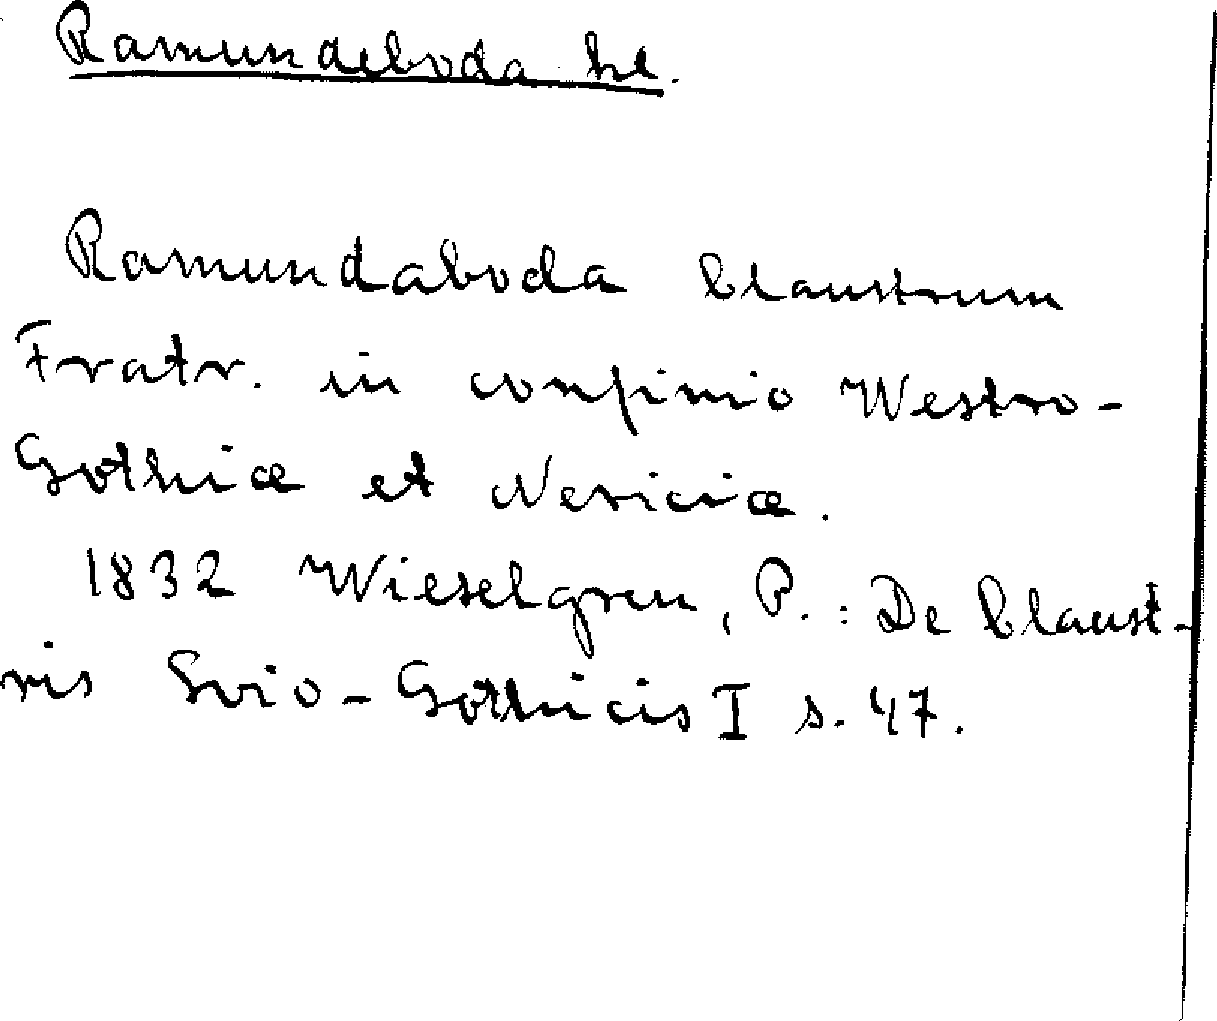 Ramundeboda hl.
Ramundaboda Claustrum
Fratr. in confinio Westro-
Gothiæ et Nericiæ.
1832 Wieselgren, P.: De Claust-
ris Svio-Gothicis I s. 47.